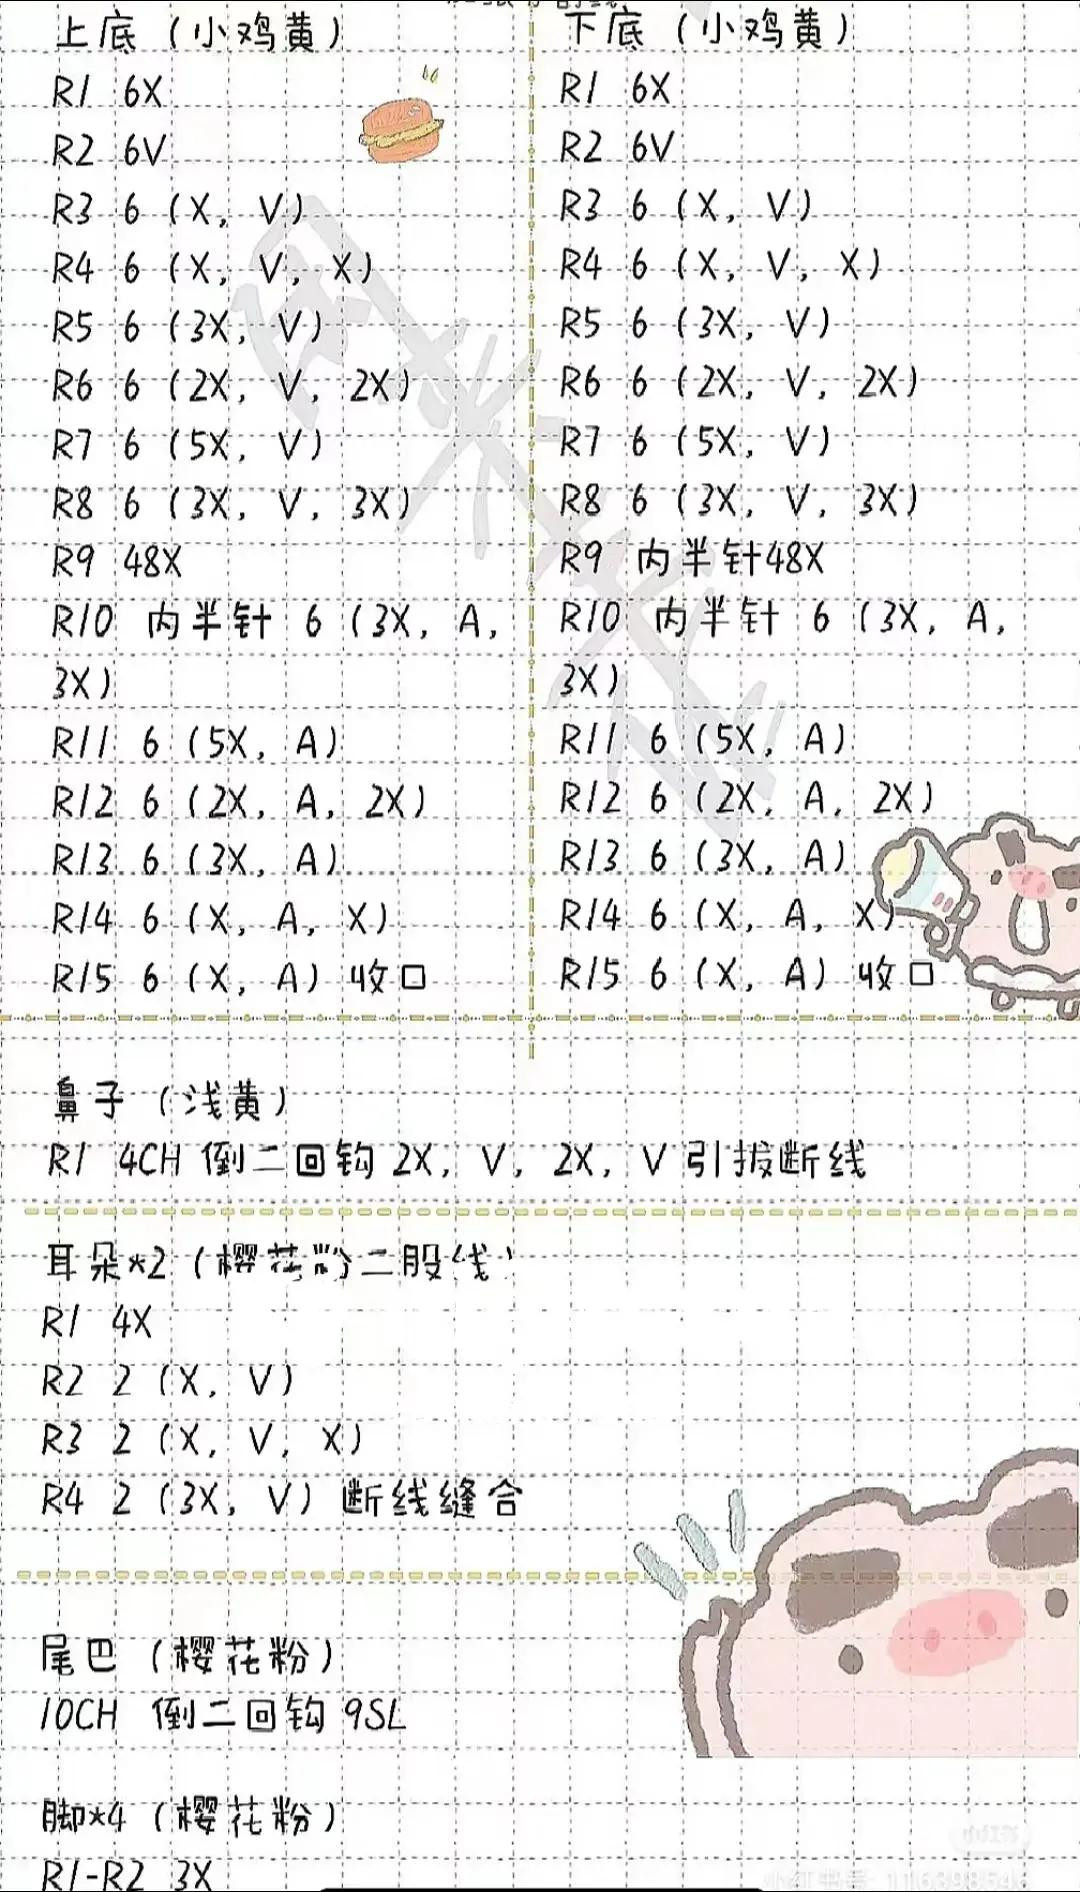 上底（小鸡黄）
R1 6X
R2 6V
R3 6（X，V）
R4 6（X，V，X）
R5 6（3X，V）
R6 6（2X，V，2X）
R7 6（5X，V）
R8 6（3X，V，3X）
R9 48X
R10 内半针 6（3X，A，
3X）
R11 6（5X，A）
R12 6（2X，A，2X）
R13 6（3X，A）
R14 6（X，A，X）
R15 6（X，A）收口
下底（小鸡黄）
R1 6X
R2 6V
R3 6（X，V）
R4 6（X，V，X）
R5 6（3X，V）
R6 6（2X，V，2X）
R7 6（5X，V）
R8 6（3X，V，3X）
R9 内半针48X
R10 内半针 6（3X，A，
3X）
R11 6（5X，A）
R12 6（2X，A，2X）
R13 6（3X，A）
R14 6（X，A，X）
R15 6（X，A）收口
鼻子（浅黄）
R1 4CH 倒二回钩 2X，V，2X，V 引拔断线
耳朵*2（樱花粉二股线）
R1 4X
R2 2（X，V）
R3 2（X，V，X）
R4 2（3X，V）断线缝合
尾巴（樱花粉）
10CH 倒二回钩 9SL
脚*4（樱花粉）
R1-R2 3X
小红书号: 116398546